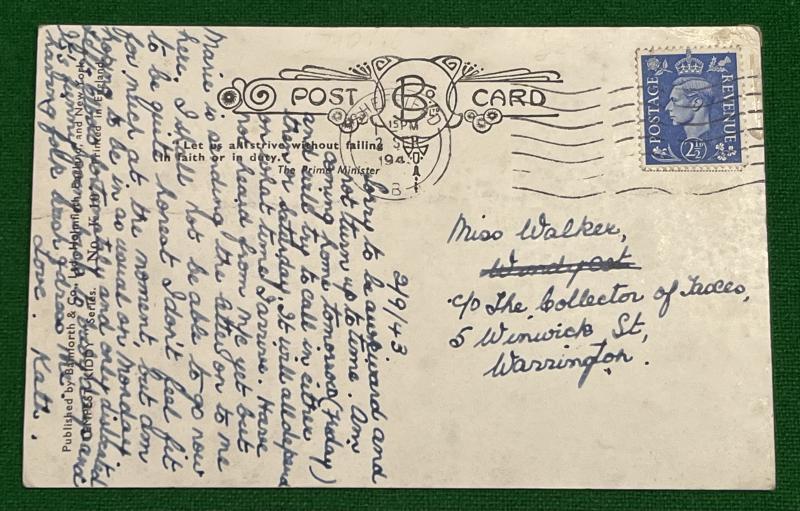 POST CARD
B Co. LTD
SHEFFIELD
15 PM
2 SEP
194
POSTAGE REVENUE
2½D
"Let us all strive without failing
in faith or in duty."
The Prime Minister
Published by Bamforth & Co., Ltd., Holmfirth, and New York
"TEMPEST KIDDY" Series. No. K Printed in England
2/9/43
Sorry to be awkward and
not turn up to time. Am
coming home tomorrow (Friday)
and will try to call in either
then or Saturday. It will all depend
on what time I arrive. Have
not heard from M/c yet but
Marie is sending the letter on to me
here. I shall not be able to go now
to be quite honest I don't feel fit
for much at the moment, but am
hoping to be in as usual on Monday
and only
having folk
Love. Kath.
Miss Walker,
c/o The Collector of Taxes,
5 Winwick St,
Warrington.